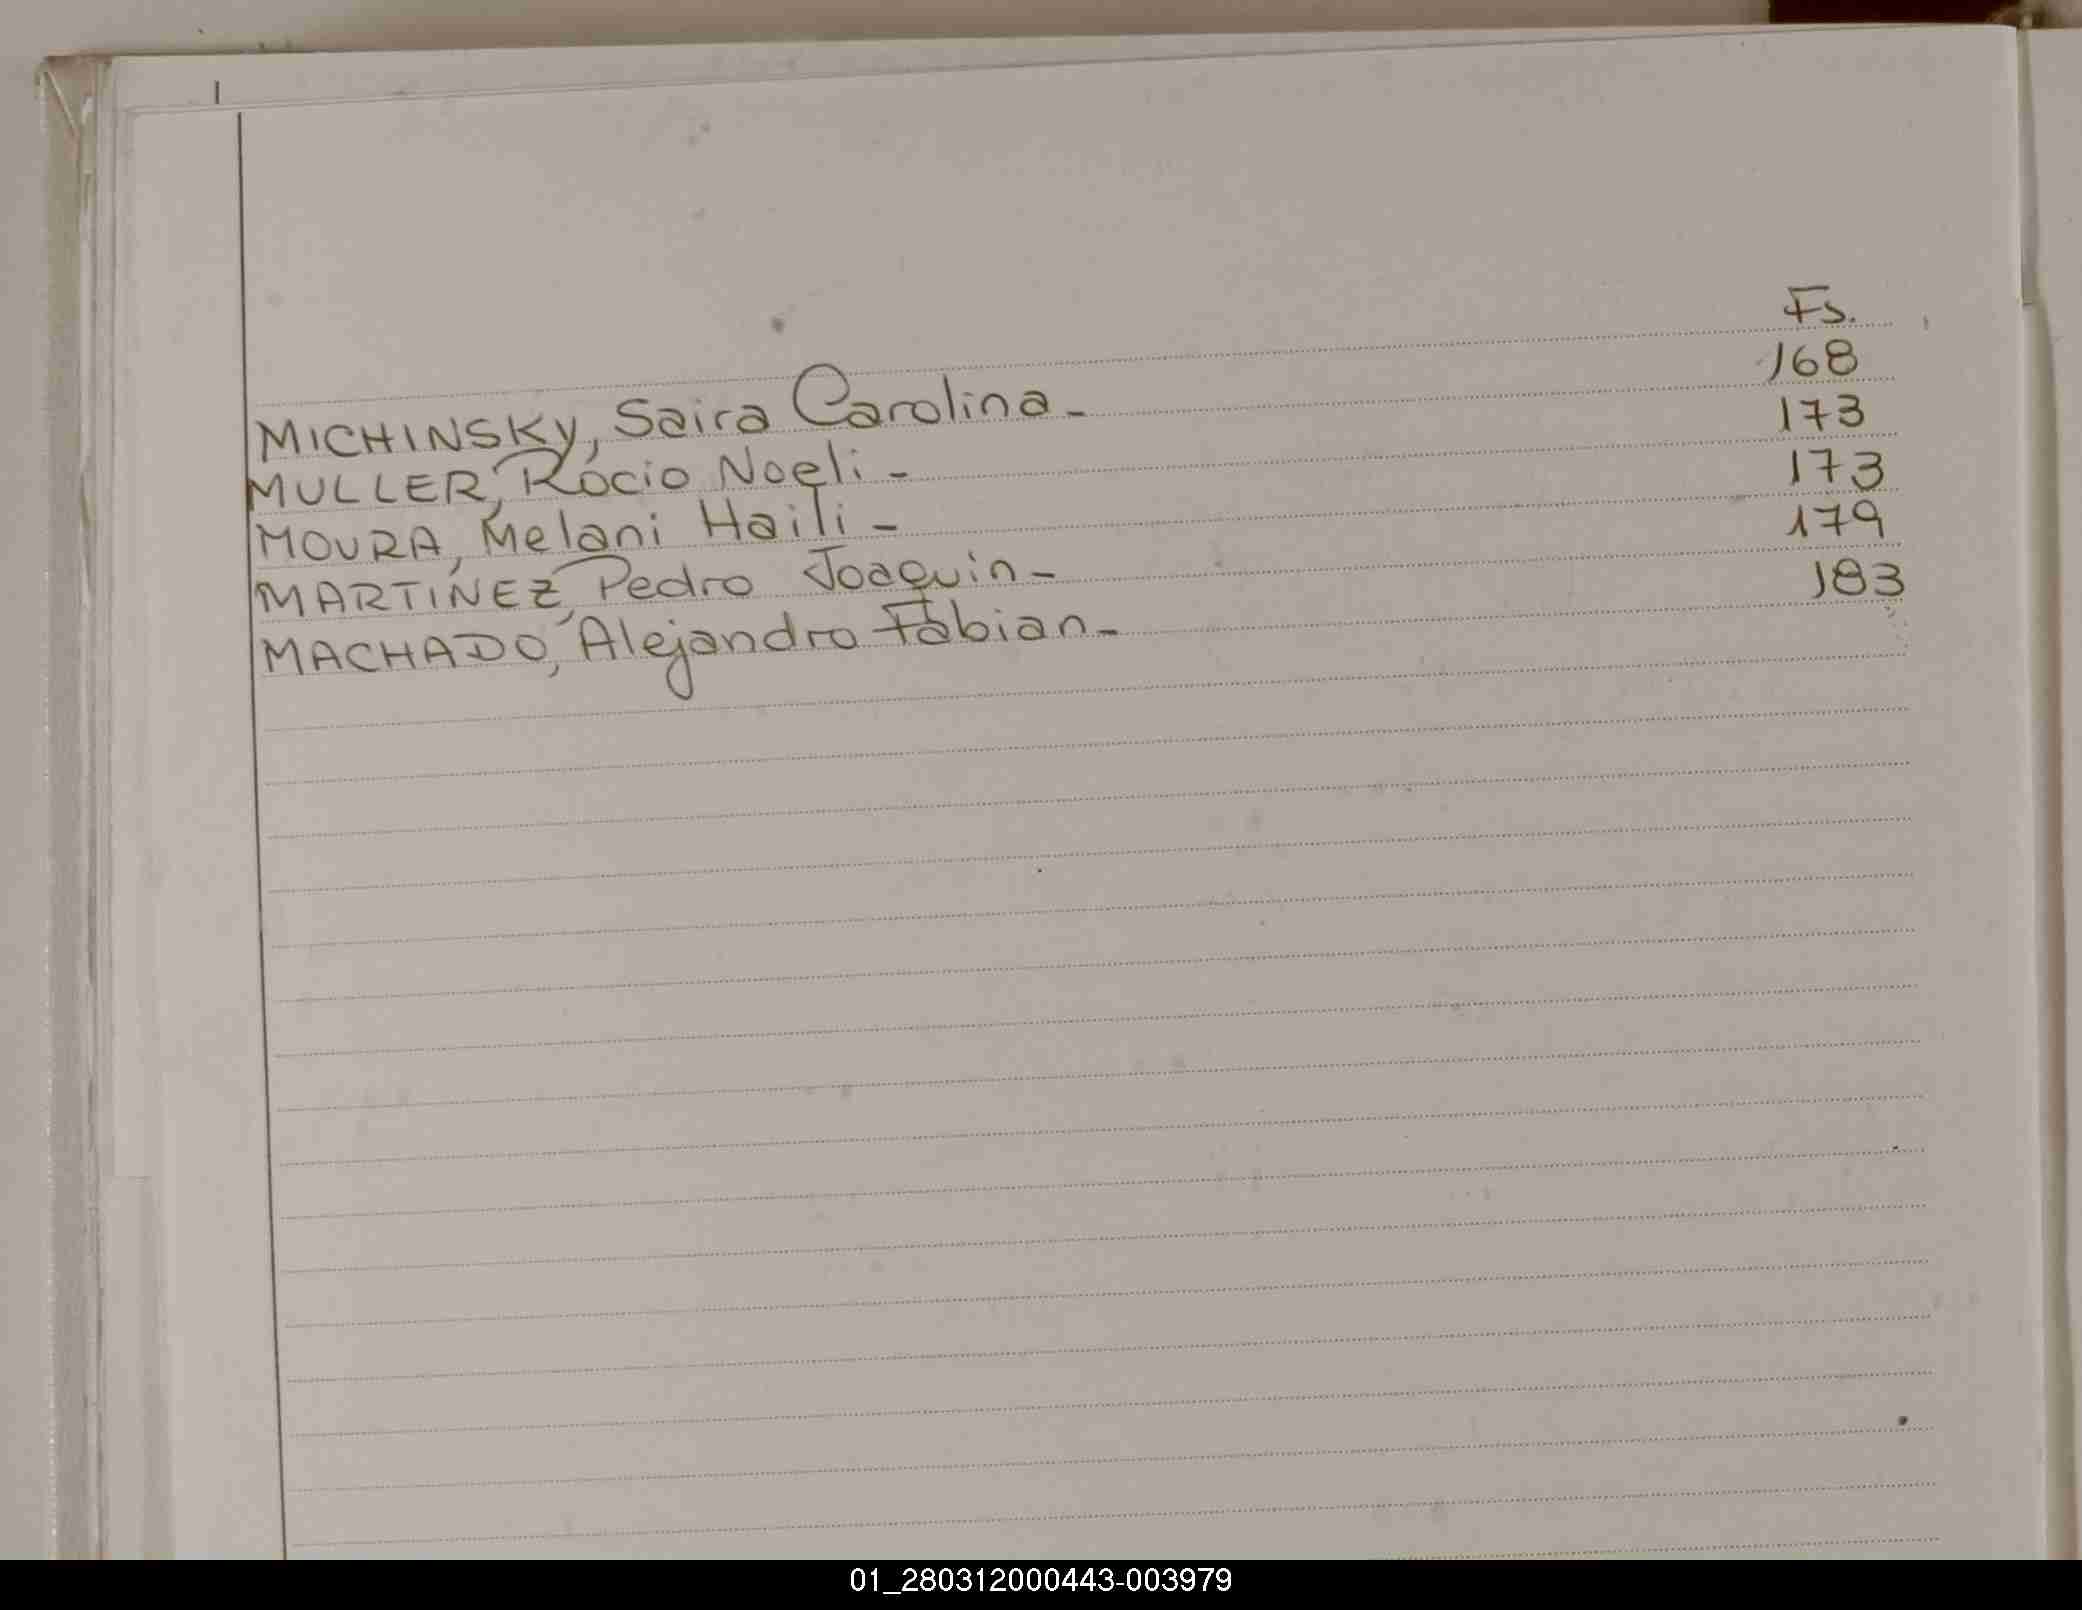 Fs.
MICHINSKY, Saira Carolina - 168
MULLER, Rocio Noeli - 173
MOURA, Melani Haili - 173
MARTINEZ, Pedro Joaquin - 179
MACHADO, Alejandro Fabian - 183
01_280312000443-003979